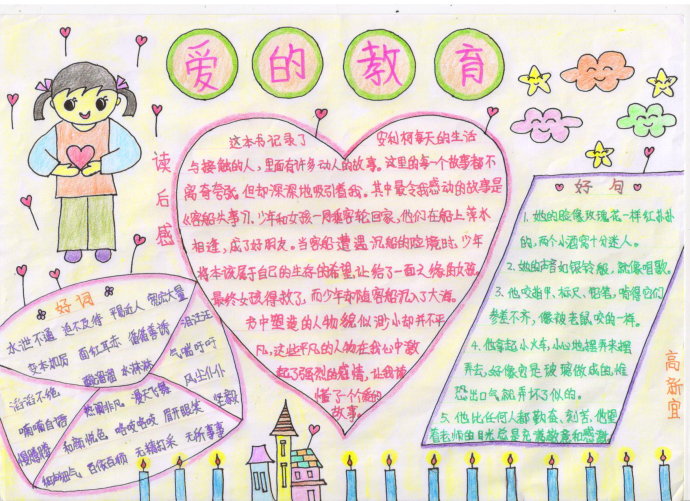 爱的教育
读后感
这本书记录了 安利柯每天的生活
与接触的人，里面有许多动人的故事。这里的每一个故事都不
离奇夸张，但却深深地吸引着我。其中最令我感动的故事是
《客船失事》，少年和女孩一同乘客轮回家，他们在船上萍水
相逢，成了好朋友。当客船遭遇沉船的险境时，少年
将本该属于自己的生存的希望，让给了一面之缘的女孩。
最终女孩得救了，而少年却随客船沉入了大海。
书中塑造的人物貌似渺小却并不平
凡，这些平凡的人物在我心中激
起了强烈的感情，让我读
懂了一个个爱的
故事。
好词
水泄不通 迫不及待 平易近人 宽宏大量
面红耳赤 循循善诱 泪汪汪
水淋淋 气喘吁吁
滔滔不绝 热闹非凡 漫天飞舞 风尘仆仆
喃喃自语 和颜悦色 眉开眼笑 坚毅
慢腾腾 百依百顺 无精打采 无所事事
好句
1. 她的脸像玫瑰花一样红扑扑
的，两个小酒窝十分迷人。
2. 她的声音如银铃般，就像唱歌。
3. 他咬指甲、标尺、铅笔，啃得它们
参差不齐，像被老鼠咬的一样。
4. 他拿起小火车，小心地摆弄来摆
弄去，好像它是玻璃做成的，惟
恐出口气就弄坏了似的。
5. 他比任何人都勤奋、刻苦，他望
着老师的目光总是充满敬意和感激。
高新宜